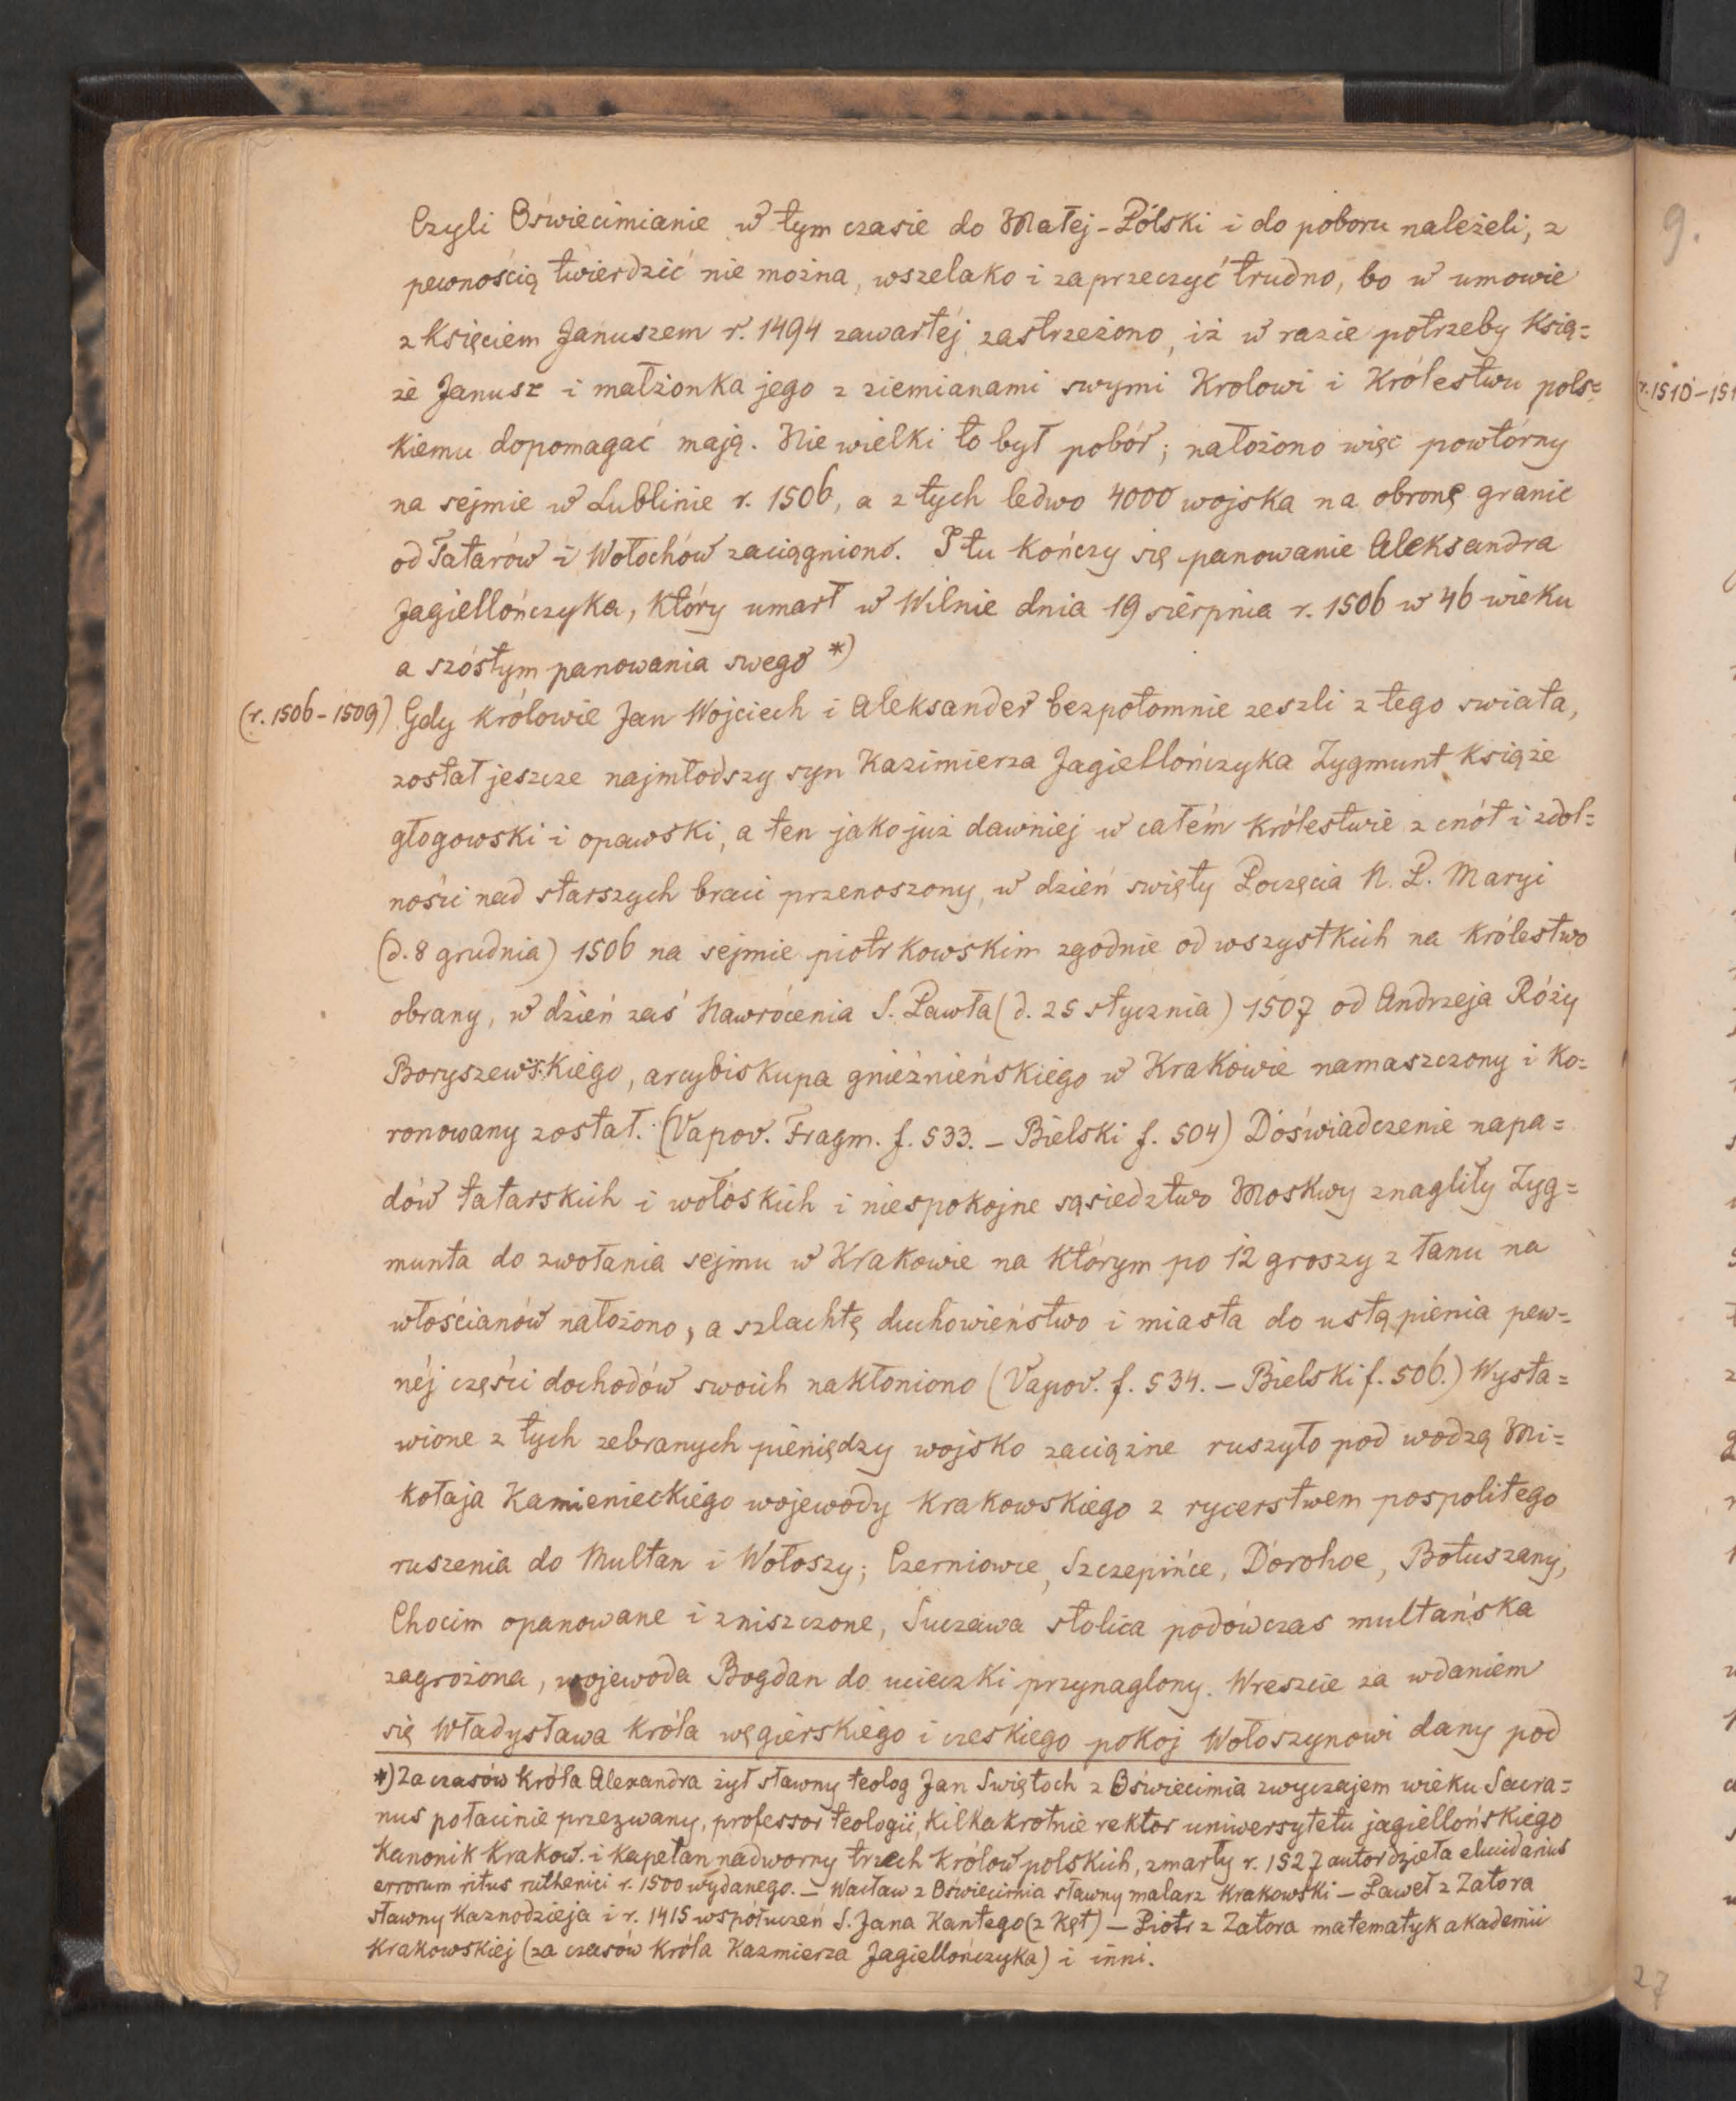 Czyli Oświecimianie w tym czasie do Małej-Pólski i do poboru należeli, z
pewnością twierdzić nie można, wszelako i zaprzeczyć trudno, bo w umowie
z księciem Januszem r. 1494 zawartéj zastrzeżono, iż w razie potrzeby Ksią=
że Janusz i małżonka jego z ziemianami swymi Krolowi i Królestwu pols=
kiemu dopomagać mają. Nie wielki to był pobór; nałożono więc powtórny
na sejmie w Lublinie r. 1506, a z tych ledwo 4000 wojska na obronę granic
od Tatarów i Wołochów zaciągniono. I tu kończy się panowanie Aleksandra
Jagiellończyka, który umarł w Wilnie dnia 19 sierpnia r. 1506 w 46 wieku
a szóstym panowania swego *)
(r. 1506-1509) Gdy królowie Jan Wojciech i Aleksander bezpotomnie zeszli z tego swiata,
został jeszcze najmłodszy syn Kazimierza Jagiellończyka Zygmunt Książe
głogowski i opawski, a ten jako już dawniej w całém królestwie z cnót i zdol=
ności nad starszych braci przenoszony, w dzień swięty Poczęcia N. P. Maryi
(d. 8 grudnia) 1506 na sejmie piotrkowskim zgodnie od wszystkich na królestwo
obrany, w dzień zaś Nawrócenia S. Pawła (d. 25 stycznia) 1507 od Andrzeja Róży
Boryszewskiego, arcybiskupa gnieźnieńskiego w Krakowie namaszczony i ko=
ronowany został. (Vapov. Fragm. f. 533. – Bielski f. 504) Doświadczenie napa=
dów tatarskich i wołoskich i niespokojne sąsiedztwo Moskwy znagliły Zyg=
munta do zwołania sejmu w Krakowie na którym po 12 groszy z łanu na
włościanów nałożono, a szlachtę duchowieństwo i miasta do ustąpienia pew=
néj części dochodów swoich nakłoniono (Vapov. f. 534. – Bielski f. 506.) Wysta=
wione z tych zebranych pieniędzy wojsko zaciążne ruszyło pod wodzą Mi=
kołaja Kamienieckiego wojewody krakowskiego z rycerstwem pospolitego
ruszenia do Multan i Wołoszy; Czerniowce, Szczepińce, Dorohoe, Botuszany,
Chocim opanowane i zniszczone, Suczawa stolica podówczas multańska
zagrożona, wojewoda Bogdan do ucieczki przynaglony. Wreszcie za wdaniem
się Władysława króla węgierskiego i czeskiego pokoj Wołoszynowi dany pod
*) Za czasów króla Alexandra żył sławny teolog Jan Swiętoch z Oświecimia zwyczajem wieku Sacra=
nus połacinie przezwany, professor teologii, kilkakrotnie rektor uniwersytetu jagiellońskiego
Kanonik Krakow. i kapelan nadworny trzech królow polskich, zmarły r. 1527 autor dzieła elucidarius
errorum ritus ruthenici r. 1500 wydanego. – Wacław z Oświecimia sławny malarz krakowski – Paweł z Zatora
sławny kaznodzieja i r. 1415 współuczeń S. Jana Kantego (z Kęt) – Piotr z Zatora matematyk akademii
krakowskiej (za czasów króla Kazmierza Jagiellończyka) i inni.
9.
(r. 1510-151
27